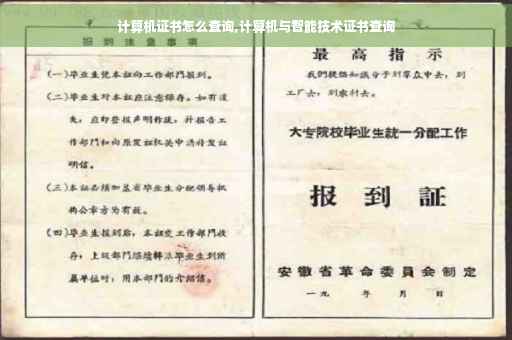 计算机证书怎么查询,计算机与智能技术证书查询
报到注意事项
(一)毕业生凭本证向工作部门报到。
(二)毕业生对本证应注意保存。如有遗
失，应即登报声明作废，并报告工
作部门和向原发证机关申请补发证
明信。
(三)本证必须加盖省毕业生分配领导机
构公章方为有效。
(四)毕业生报到后，本证交工作部门收
存；上级部门
毕业生到所
属单位时，用本部门的介绍信。
最高指示
我们提倡知识分子到群众中去，到
工厂去，到农村去。
大专院校毕业生统一分配工作
报到証
安徽省革命委員会制定
一九 年 月 日